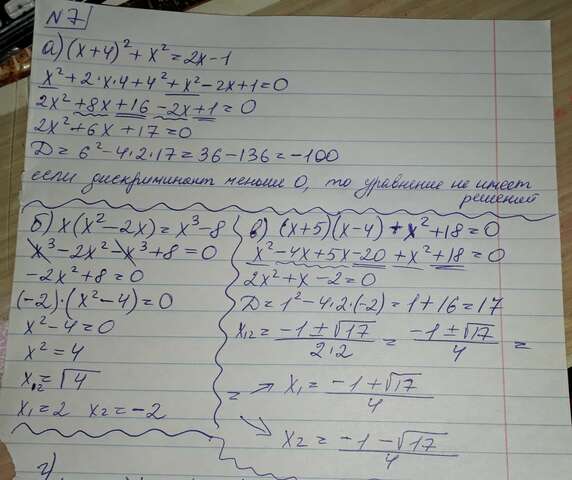 №7
а) (x+4)² + x² = 2x-1
x² + 2·x·4 + 4² + x² - 2x + 1 = 0
2x² + 8x + 16 - 2x + 1 = 0
2x² + 6x + 17 = 0
D = 6² - 4·2·17 = 36 - 136 = -100
если дискриминант меньше 0, то уравнение не имеет
решений
б) x(x² - 2x) = x³ - 8
x³ - 2x² - x³ + 8 = 0
-2x² + 8 = 0
(-2)·(x² - 4) = 0
x² - 4 = 0
x² = 4
x₁,₂ = √4
x₁ = 2 x₂ = -2
в) (x+5)(x-4) + x² + 18 = 0
x² - 4x + 5x - 20 + x² + 18 = 0
2x² + x - 2 = 0
D = 1² - 4·2·(-2) = 1 + 16 = 17
x₁₂ = (-1 ± √17)/(2·2) = (-1 ± √17)/4 =
= → x₁ = (-1 + √17)/4
↘ x₂ = (-1 - √17)/4
г)